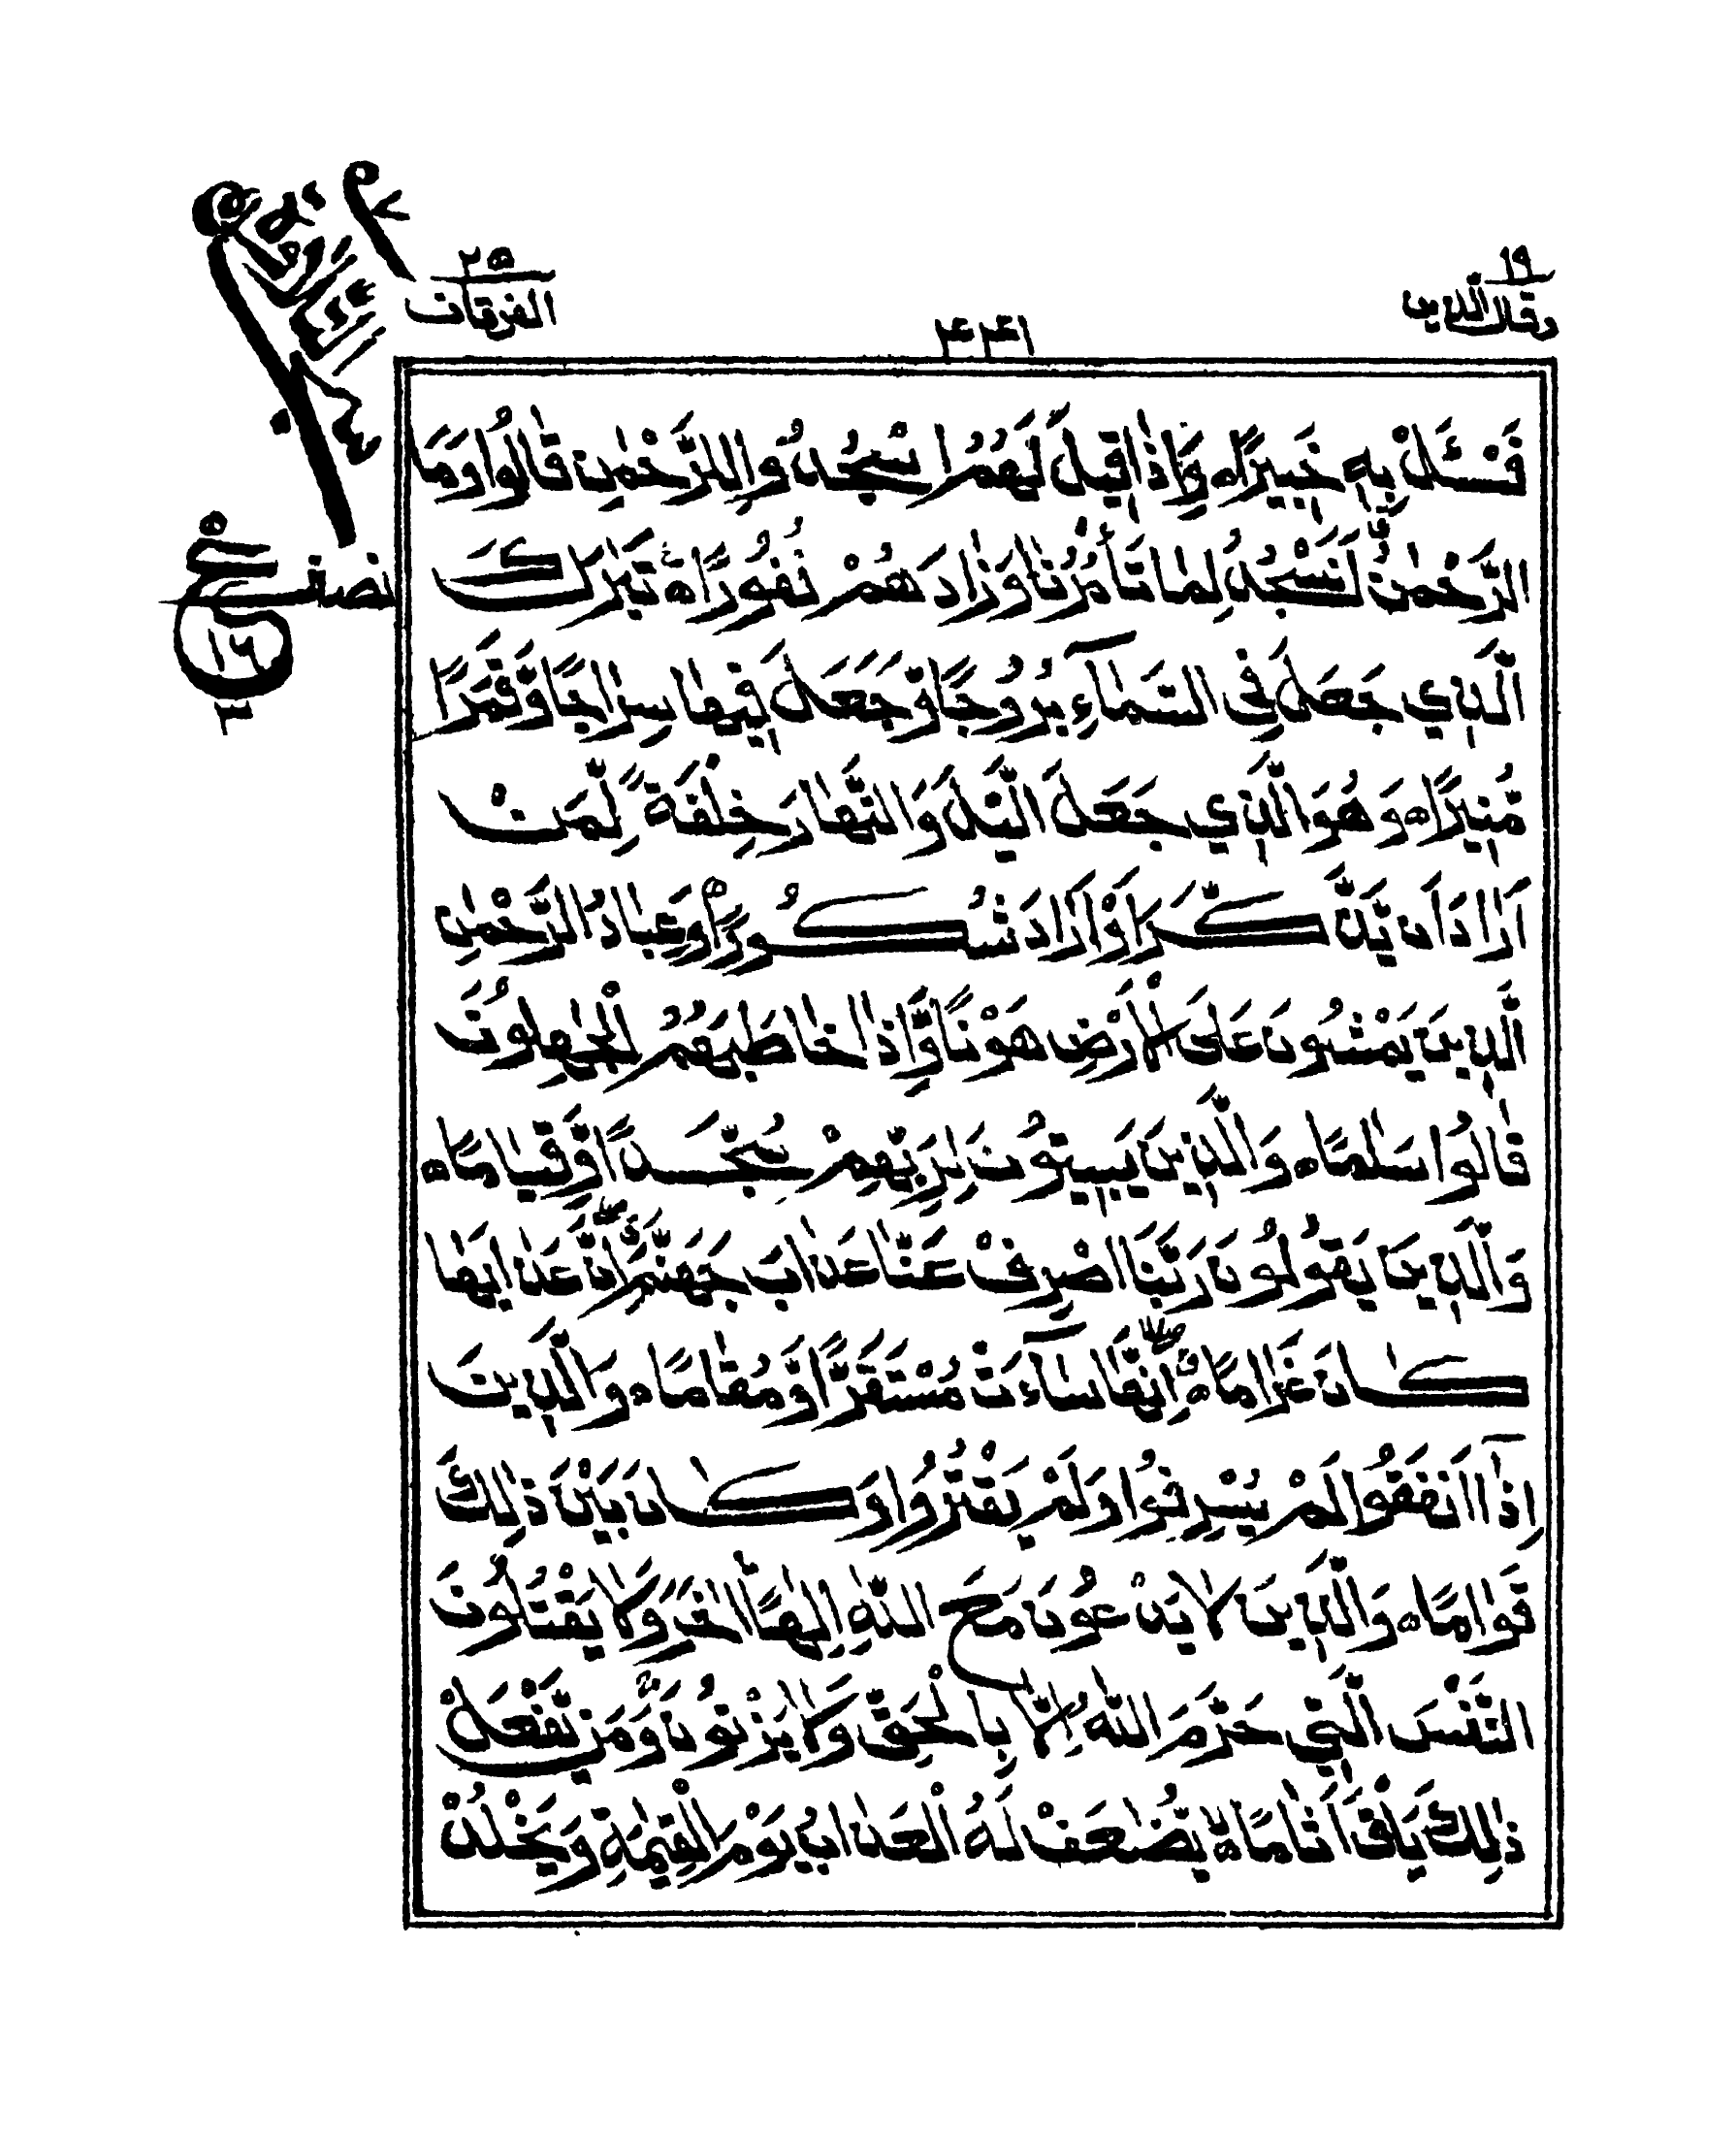 ١٩
وقال الذين
٢٥
الفرقان
٤٤١
فَسْـَٔلْ بِهٖ خَبِيْرًا ۝ وَاِذَا قِيْلَ لَهُمُ اسْجُدُوْا لِلرَّحْمٰنِ قَالُوْا وَمَا
الرَّحْمٰنُ اَنَسْجُدُ لِمَا تَاْمُرُنَا وَزَادَهُمْ نُفُوْرًا ۝ تَبٰرَكَ
الَّذِيْ جَعَلَ فِي السَّمَآءِ بُرُوْجًا وَّجَعَلَ فِيْهَا سِرٰجًا وَّقَمَرًا
مُّنِيْرًا ۝ وَهُوَ الَّذِيْ جَعَلَ الَّيْلَ وَالنَّهَارَ خِلْفَةً لِّمَنْ
اَرَادَ اَنْ يَّذَّكَّرَ اَوْ اَرَادَ شُكُوْرًا ۝ وَعِبَادُ الرَّحْمٰنِ
الَّذِيْنَ يَمْشُوْنَ عَلَى الْاَرْضِ هَوْنًا وَّاِذَا خَاطَبَهُمُ الْجٰهِلُوْنَ
قَالُوْا سَلٰمًا ۝ وَالَّذِيْنَ يَبِيْتُوْنَ لِرَبِّهِمْ سُجَّدًا وَّقِيَامًا ۝
وَالَّذِيْنَ يَقُوْلُوْنَ رَبَّنَا اصْرِفْ عَنَّا عَذَابَ جَهَنَّمَ اِنَّ عَذَابَهَا
كَانَ غَرَامًا ۝ اِنَّهَا سَآءَتْ مُسْتَقَرًّا وَّمُقَامًا ۝ وَالَّذِيْنَ
اِذَآ اَنْفَقُوْا لَمْ يُسْرِفُوْا وَلَمْ يَقْتُرُوْا وَكَانَ بَيْنَ ذٰلِكَ
قَوَامًا ۝ وَالَّذِيْنَ لَا يَدْعُوْنَ مَعَ اللّٰهِ اِلٰهًا اٰخَرَ وَلَا يَقْتُلُوْنَ
النَّفْسَ الَّتِيْ حَرَّمَ اللّٰهُ اِلَّا بِالْحَقِّ وَلَا يَزْنُوْنَ وَمَنْ يَّفْعَلْ
ذٰلِكَ يَلْقَ اَثَامًا ۝ يُّضٰعَفْ لَهُ الْعَذَابُ يَوْمَ الْقِيٰمَةِ وَيَخْلُدْ
نصف
ع
١٦
٣